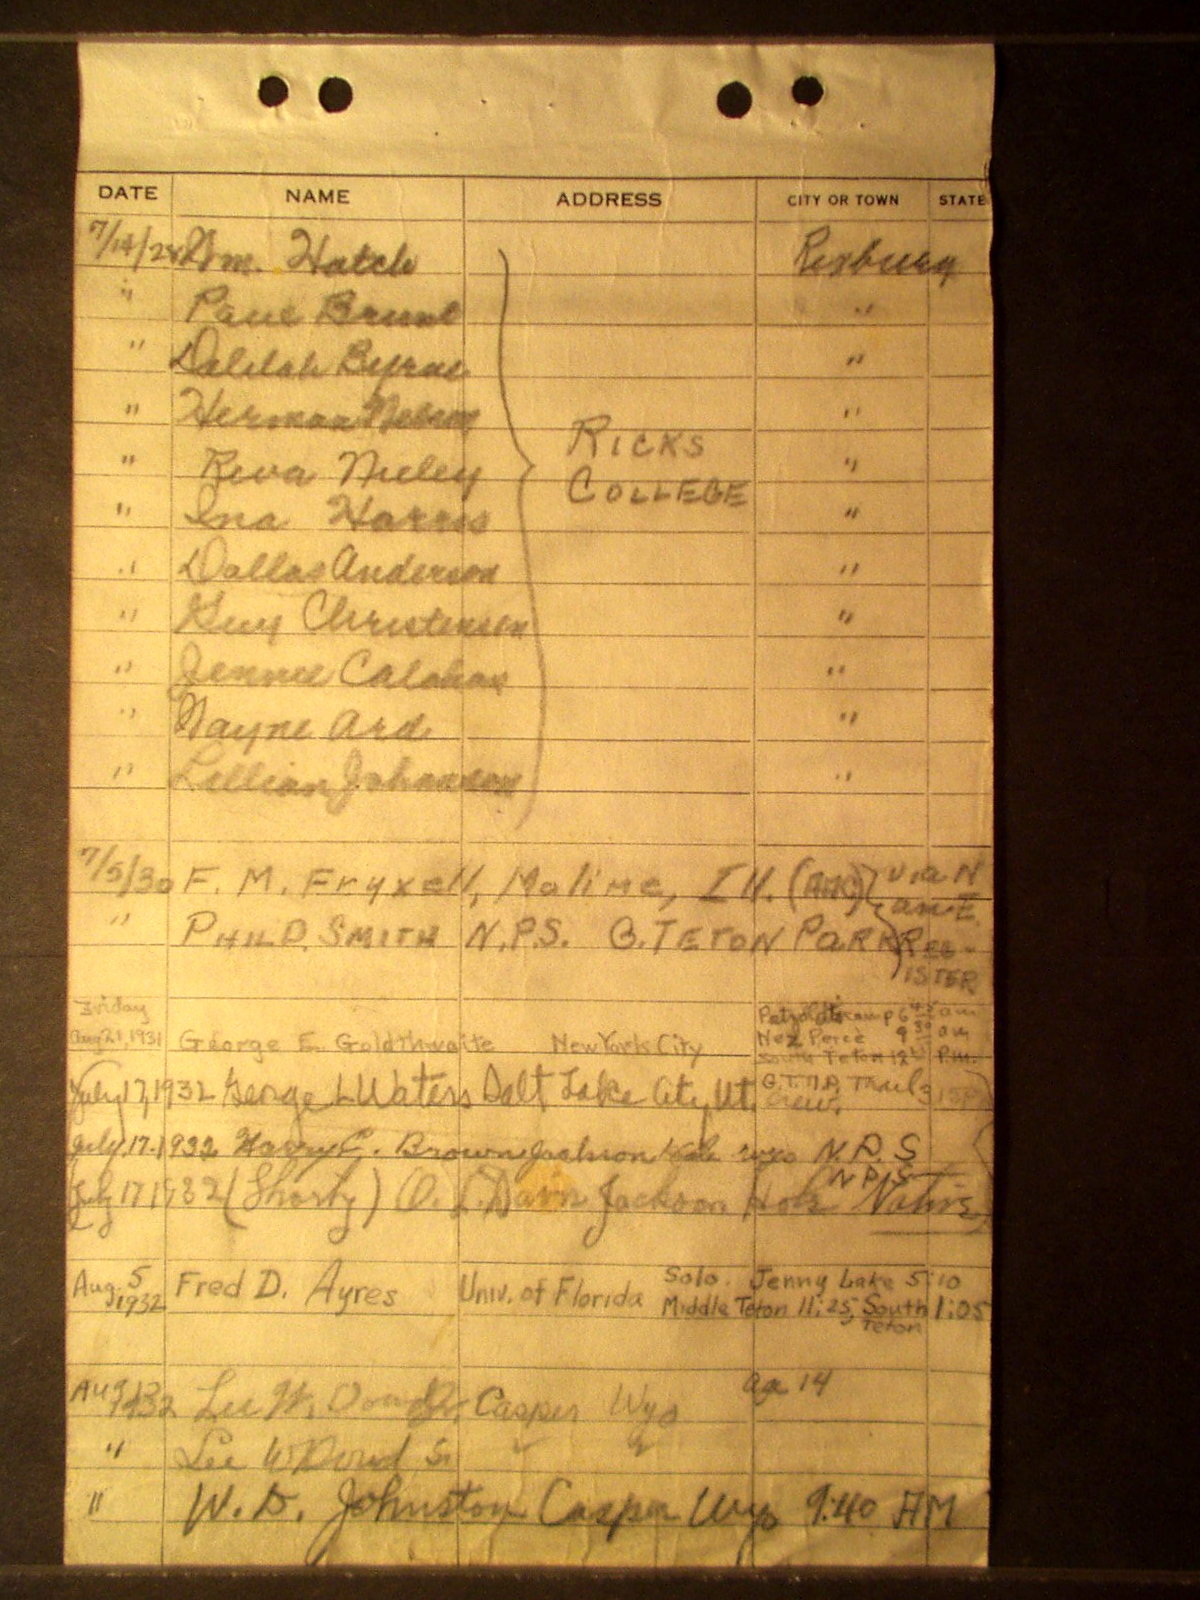 DATE NAME ADDRESS CITY OR TOWN STATE
7/14/28 Wm. Hatch Rexburg
" Paul Brunt "
" Dalilah Byrne "
" Herman Nelson "
" Reva Nieley "
" Ina Harris "
RICKS
COLLEGE
" Dallas Anderson "
" Guy Christensen "
" Jennie Calahan "
" Wayne Ard "
" Lillian Johanson "
7/5/30 F. M. Fryxell, Moline, Ill. via N
and E.
" PHIL D. SMITH N.P.S. G. TETON PARK REG-
ISTER
Friday
Aug 21, 1931 George E. Goldthwaite New York City
Petzoldt's camp 6 45 am
Nez Perce 9 30 am
South Teton 12 P.m.
July 17, 1932 George L Waters Salt Lake City, Ut. G.T.N.P. Trail crew.
July 17. 1932 Harry E. Brown Jackson Hole Wyo N.P.S
N P S
July 17 1932 (Shorty) O. L. Dawn Jackson Hole Native
Aug. 5
1932 Fred D. Ayres Univ. of Florida Solo. Jenny Lake 5:10
Middle Teton 11:25, South Teton 1:05
Aug 13
1932 Lee W. Dowd Jr. Casper Wyo age 14
" Lee W Dowd Sr " "
" W. D. Johnston Casper Wyo 9:40 AM